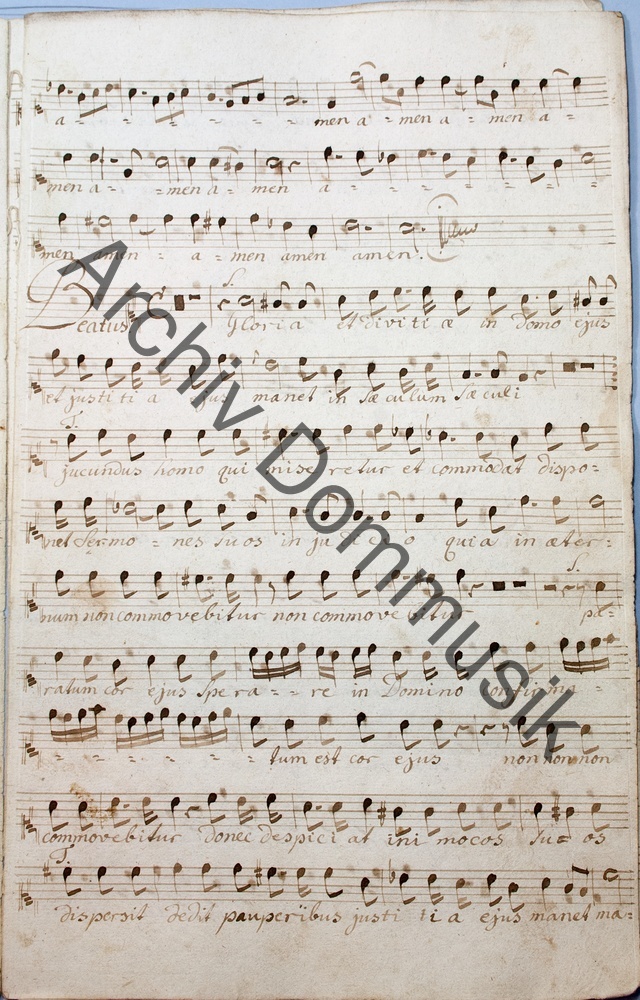 a - - - - - - - men a - men a - men a -
men a - - men a - men a - - - - - -
men amen - a - men amen amen.
Beatus S. Gloria et divitiæ in domo ejus
et justitia ejus manet in Sæculum Sæculi
T.
jucundus homo qui miseretur et commodat dispo-
net Sermo - nes suos in judicio quia in æter-
S.
num non commovebitur non commovebitur pa-
ratum cor ejus spera - - re in Domino confirma -
- - - - - - tum est cor ejus non non non
commovebitur donec despiciat inimocos su= os
T.
dispersit dedit pauperibus justitia ejus manet ma=
Archiv Dommusik